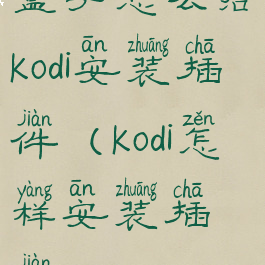 盒子怎么给
ān zhuāng chā
kodi安装插
jiàn zěn
件（kodi怎
yàng ān zhuāng chā
样安装插
jiàn